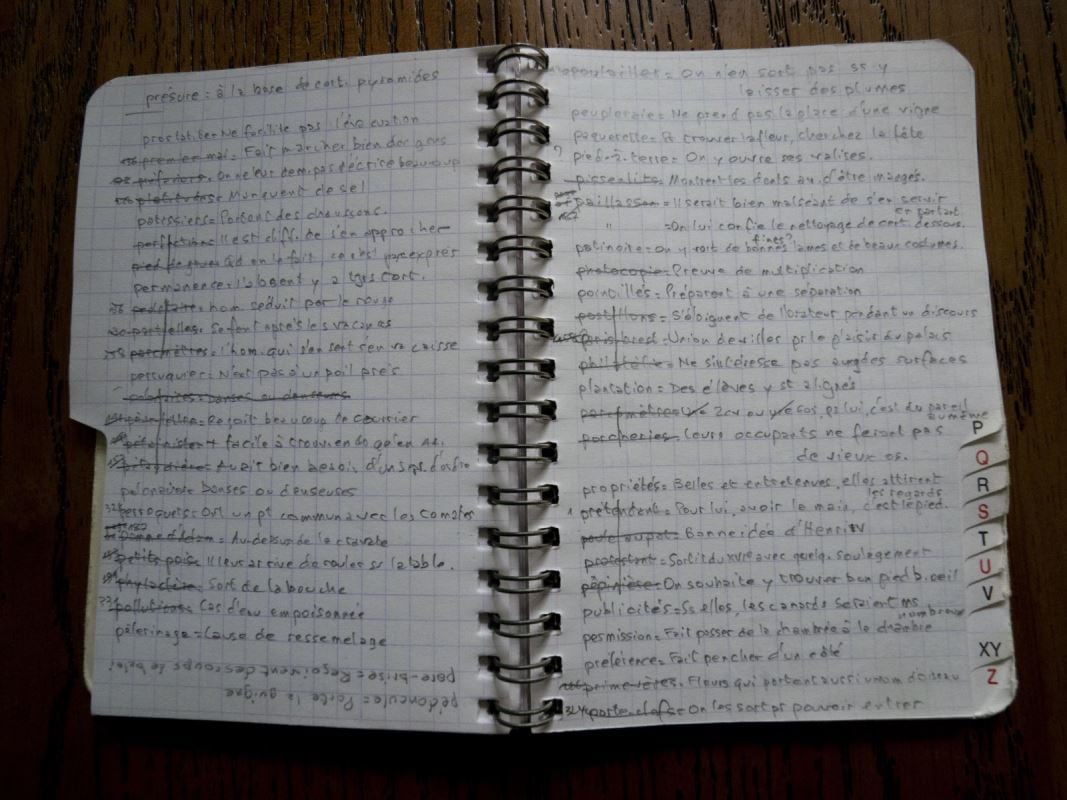 présure = à la base de cert. pyramides
prostatite = Ne facilite pas l'évacuation
premier mai = Fait marcher bien des gens
On ne leur demande pas d'écrire beaucoup
platitudes = Manquent de sel
patissiers = Portent des chaussons.
perfection = Il est diff. de s'en approcher
pied de grue = Qd on le fait, ce n'est pas exprès
permanence = L'absent y a tjrs tort.
hom. séduit par le rouge
Se font après les vacances
l'hom. qui s'en sert s'en va caisse
perruquier = N'est pas à un poil près
polonaises = danses ou danseuses
Reçoit beaucoup de courrier
+ facile à trouver en
Aurait bien besoin d'un srps. d'ordre
polonaises = Danses ou danseuses
perroquets = Ont un pt commun avec les comptes
pomme d'Adam = Au-dessus de la cravate
petits pois = Il leur arrive de rouler ss la table.
phylactère = Sort de la bouche
pollutions = Cas d'eau empoisonnée
pèlerinage = Cause de ressemelage
pare-brise = Reçoivent des coups de balai
pédoncule = Porte la guigne
poulailler = On n'en sort pas ss y
laisser des plumes
peupleraie = Ne prend pas la place d'une vigne
paquerette = Pr trouver la fleur, cherchez la bête
? pied-à-terre = On y ouvre ses valises.
pissenlits = Montrent les dents av. d'être mangés.
paillasson = Il serait bien malséant de s'en servir
en partant.
" = On lui confie le nettoyage de cert. dessous.
fines?
patinoire = On y voit de bonnes lames et de beaux costumes.
photocopie = Preuve de multiplication
pointillés = Préparent à une séparation
postillons = S'éloignent de l'orateur pendant un discours
paris brest = Union de villes pr le plaisir du palais
philatélie = Ne s'intéresse pas aux gdes surfaces
plantation = Des élèves y st alignés
Zéro ou pr lui, c'est du pareil
au même
porcheries = Leurs occupants ne feront pas
de vieux os.
propriétés = Belles et entretenues, elles attirent
les regards
prétendant = Pour lui, avoir la main, c'est le pied.
poule au pot = Bonne idée d'Henri IV
protestant = Sortit du XVIe avec quelq. soulagement
pépinière = On souhaite y trouver bon pied b. oeil
publicités = Ss elles, les canards seraient ms
nombreux
permission = Fait passer de la chambrée à la chambre
préférence = Fait pencher d'un côté
primevères = Fleurs qui portent aussi un nom d'oiseau
324 porte-clefs = On les sort pr pouvoir entrer
P
Q
R
S
T
U
V
XY
Z